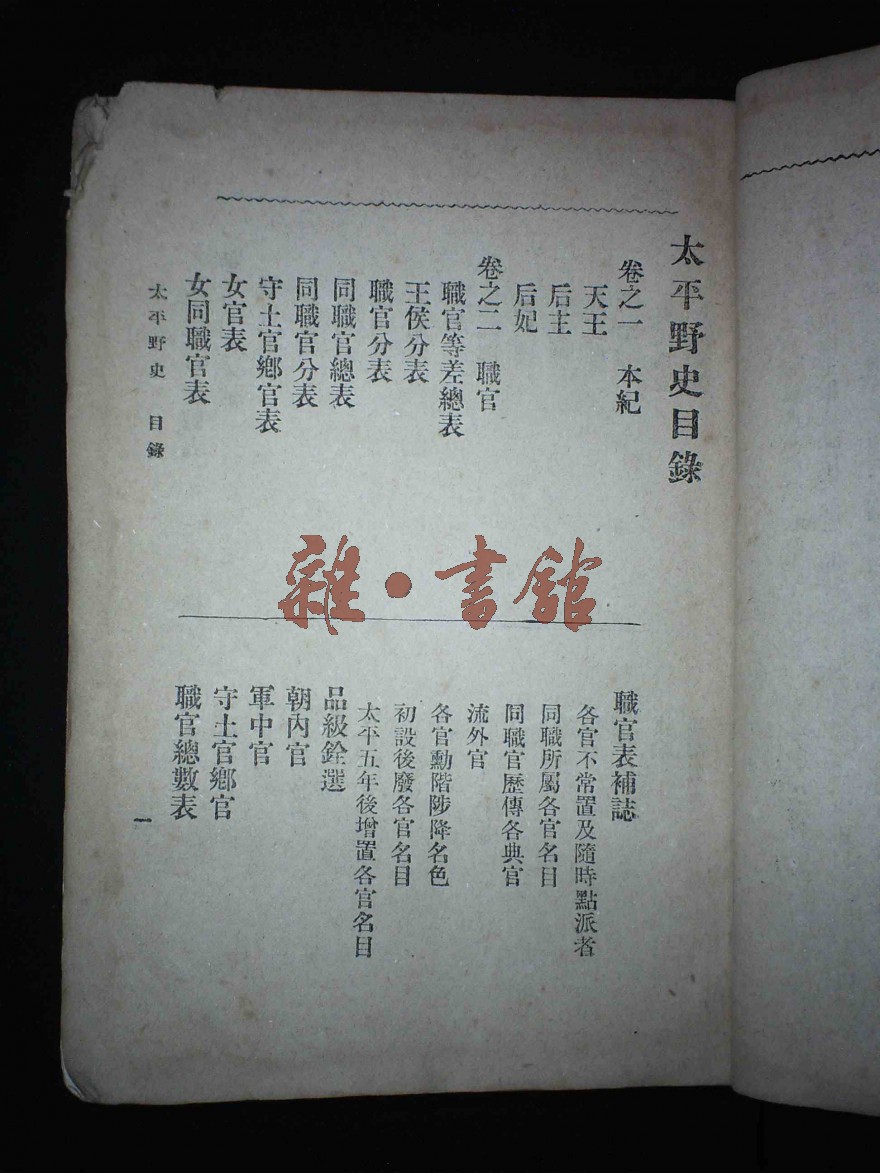 太平野史目錄
卷之一　本紀
天王
后主
后妃
卷之二　職官
職官等差總表
王侯分表
職官分表
同職官總表
同職官分表
守土官鄉官表
女官表
女同職官表
職官表補誌
各官不常置及隨時點派者
同職所屬各官名目
同職官歷傳各典官
流外官
各官勳階陟降名色
初設後廢各官名目
太平五年後增置各官名目
品級銓選
朝內官
軍中官
守土官鄉官
職官總數表
太平野史　目錄
一
雜·書館